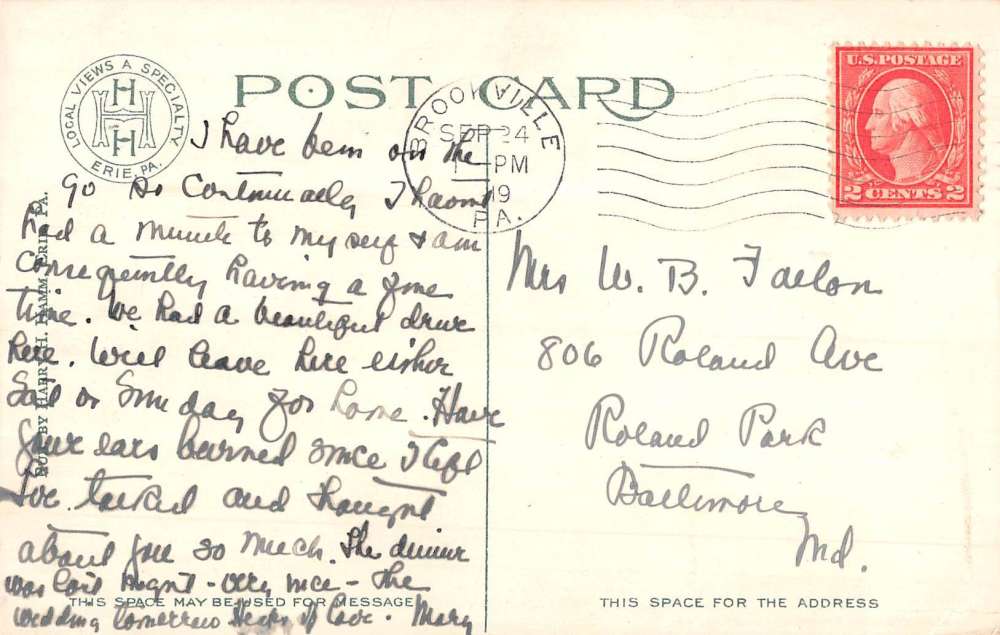 POST CARD
LOCAL VIEWS A SPECIALTY
H H H
ERIE, PA.
BROOKVILLE
SEP 24
PM
19
PA.
U.S. POSTAGE
2 CENTS 2
PUB. BY HARRY H. HAMM, ERIE, PA.
I have been on the
go so continually I havent
had a minute to myself & am
consequently having a fine
time. We had a beautiful drive
here. Will leave here either
Sat or Sunday for home. Have
your ears burned since I left
I've talked and thought
about you so much. The dinner
was last night - very nice - The
wedding tomorrow Heaps of love. Mary
Mrs W. B. Fallon
806 Roland Ave
Roland Park
Baltimore
Md.
THIS SPACE MAY BE USED FOR MESSAGE
THIS SPACE FOR THE ADDRESS